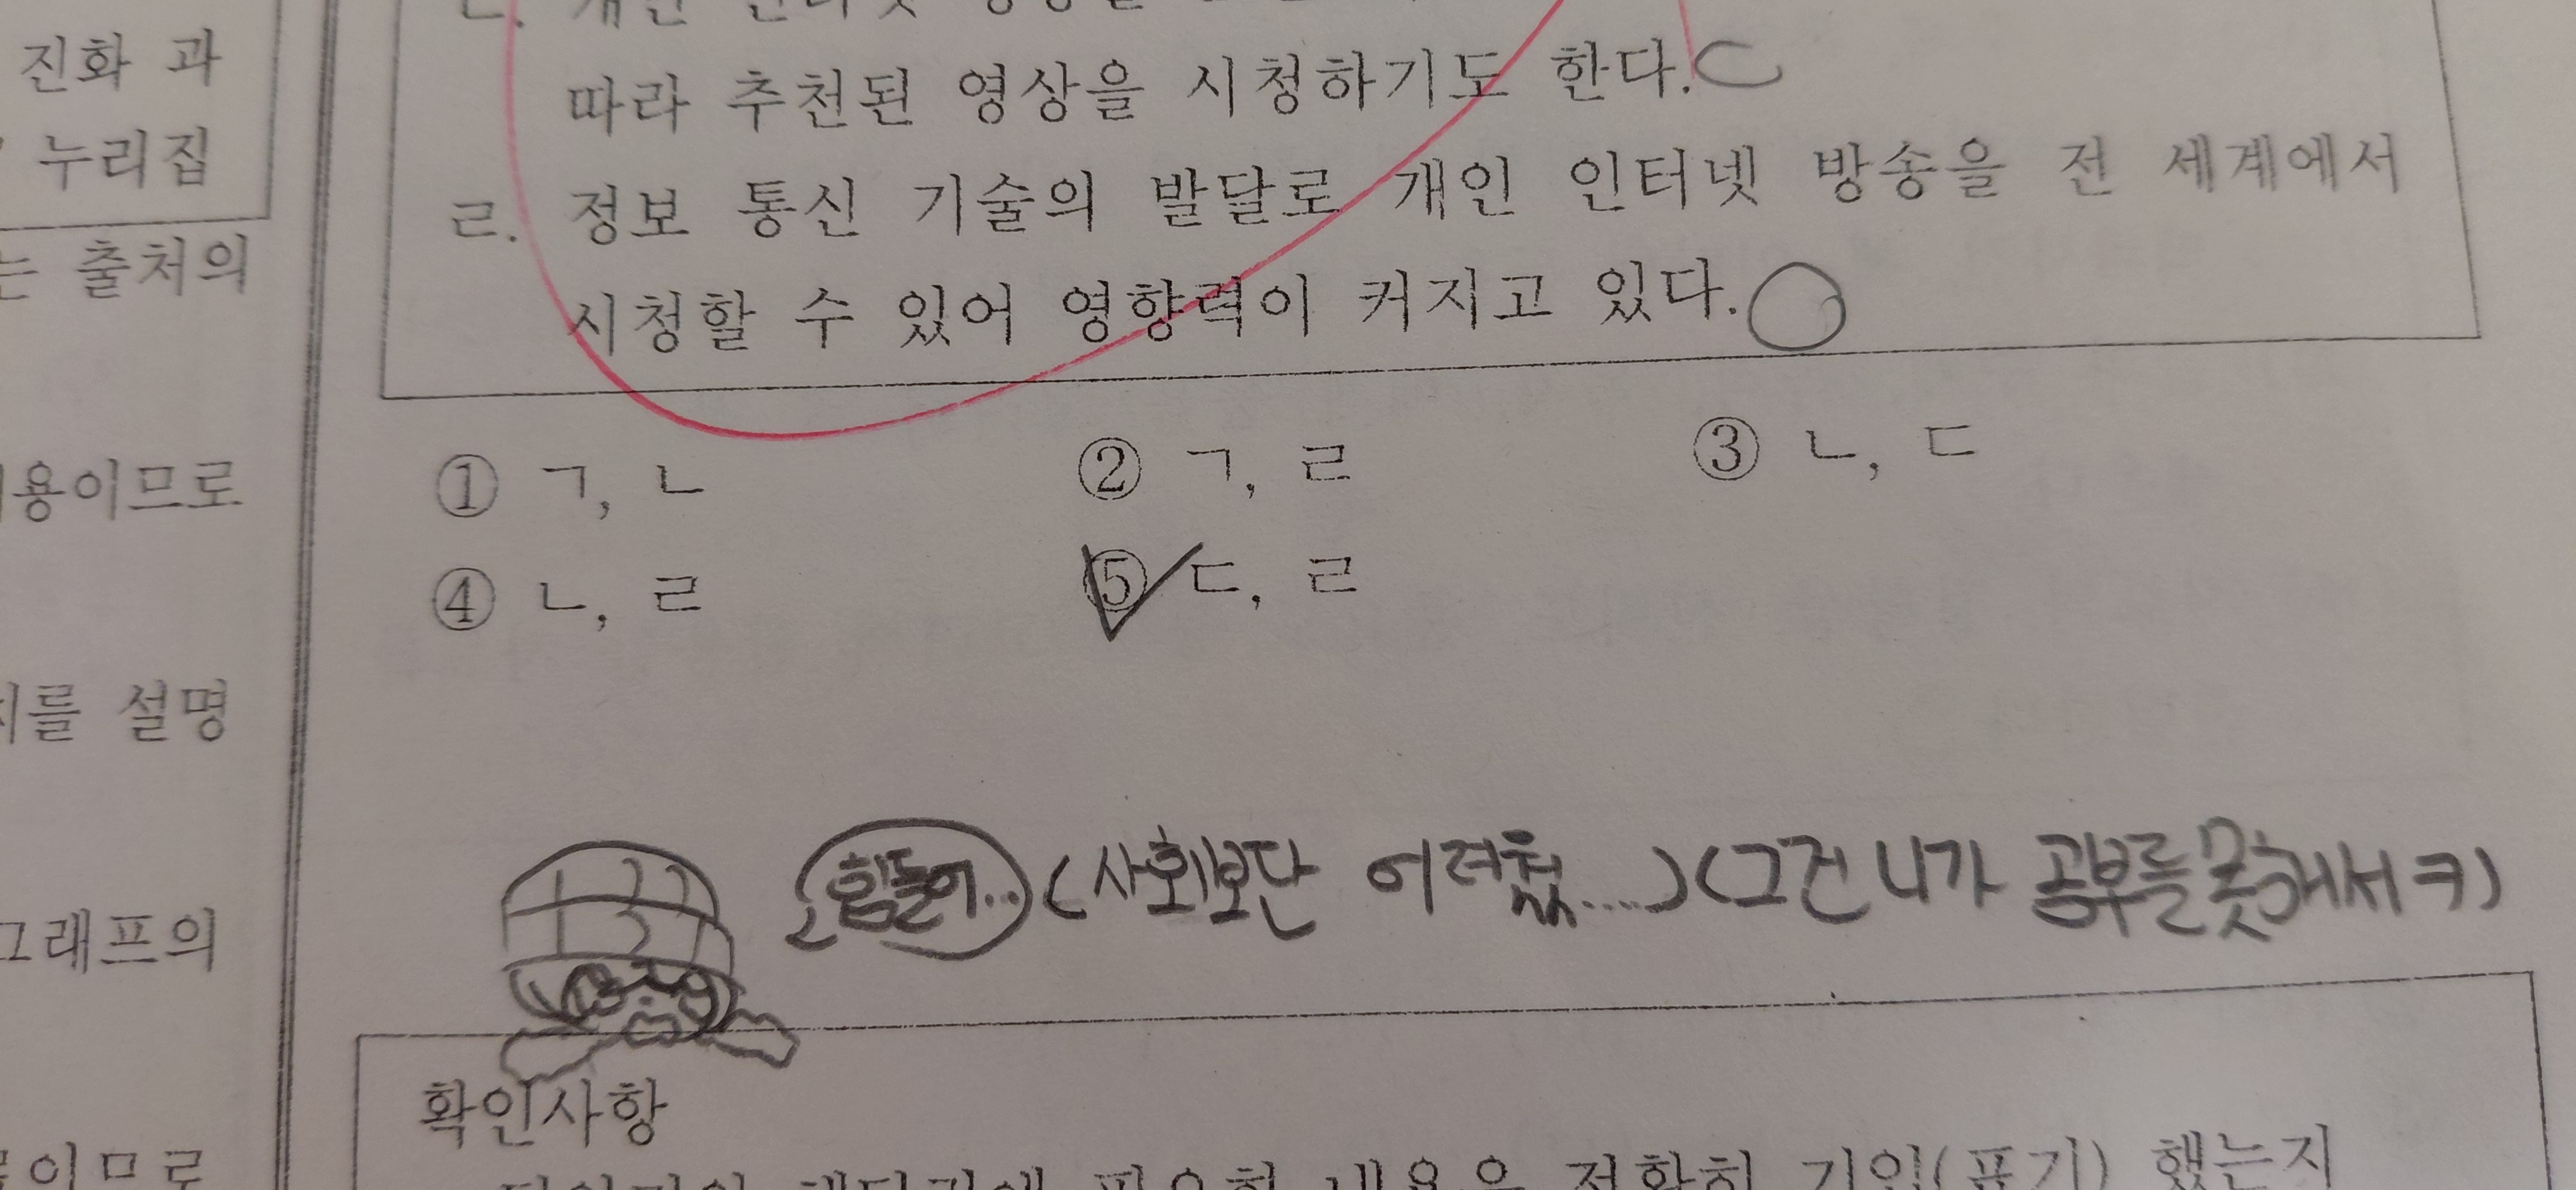 진화 과
누리집
는 출처의
용이므로
를 설명
그래프의
이므로
ㄷ. 개인 인터넷
따라 추천된 영상을 시청하기도 한다.
ㄹ. 정보 통신 기술의 발달로 개인 인터넷 방송을 전 세계에서
시청할 수 있어 영향력이 커지고 있다.
① ㄱ, ㄴ ② ㄱ, ㄹ ③ ㄴ, ㄷ
④ ㄴ, ㄹ ⑤ ㄷ, ㄹ
힘들어.. (사회보단 어려웠....) (그건 니가 공부를 못해서 ㅋ)
확인사항
답안지의 해당란에 필요한 내용을 정확히 기입(표기) 했는지